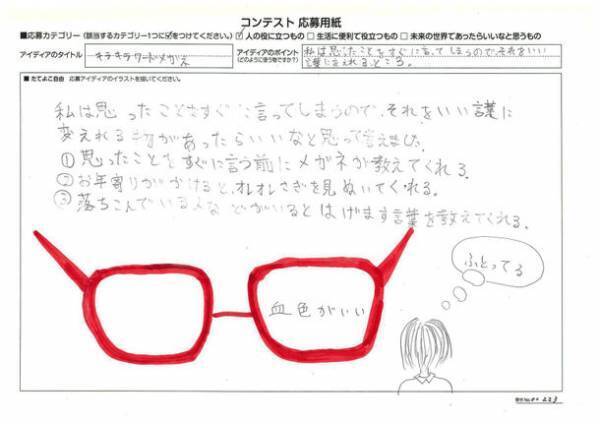 コンテスト 応募用紙
■応募カテゴリー(該当するカテゴリー1つに☑をつけてください。) ☑ 人の役に立つもの □ 生活に便利で役立つもの □ 未来の世界であったらいいなと思うもの
アイディアのタイトル キラキラワードメガネ
アイディアのポイント (どのように使う物ですか?) 私は思ったことをすぐに言ってしまうので、それをいい
言葉に変えれるところ。
■たてよこ自由 応募アイディアのイラストを描いてください。
私は思ったことをすぐに言ってしまうので、それをいい言葉に
変えれる物があったらいいなと思って考えました。
①思ったことをすぐに言う前にメガネが教えてくれる。
②お年寄りがかけると、オレオレさぎを見ぬいてくれる。
③落ちこんでいる人などがいるとはげます言葉を教えてくれる。
ふとってる
血色がいい